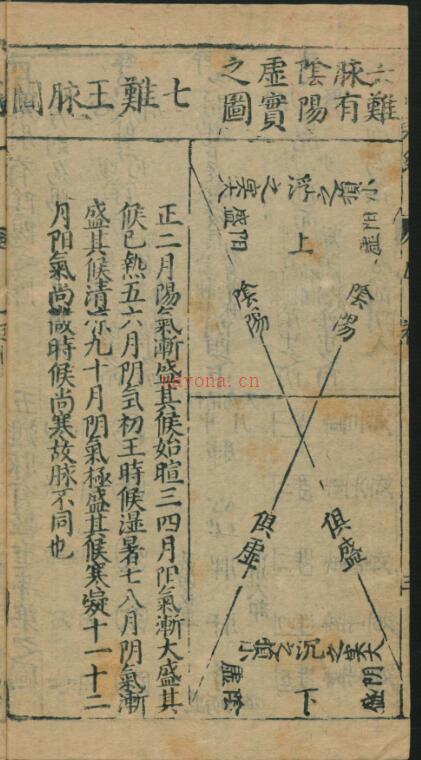 六難
脉有
陰陽
虛實
之圖
小
陽虛
損之浮之實大
陽盛
上
陰陽
陰陽
俱盛
俱虛
實大
沉之
損小
陰盛
陰虛
下
七難王脉圖
正二月陽氣漸盛其候始暄三四月阳氣漸大盛其
候已熱五六月阴气初王時候湿暑七八月阴氣漸
盛其候清凉九十月阴氣極盛其候寒凝十一十二
月阳氣尚微時候尚寒故脉不同也
nayona.cn